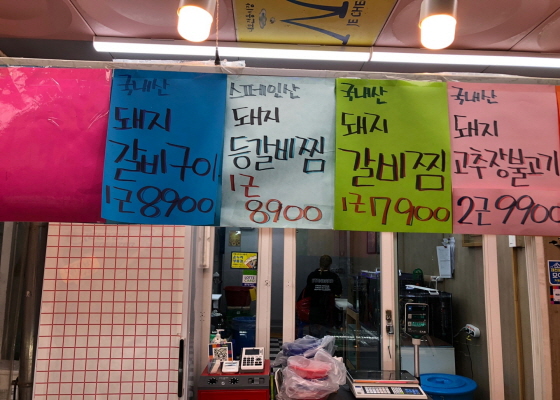 M
JE CHE
국내산
돼지
갈비구이
1근 8900
스페인산
돼지
등갈비찜
1근
8900
국내산
돼지
갈비찜
1근 7900
국내산
돼지
고추장불고기
2근 9900